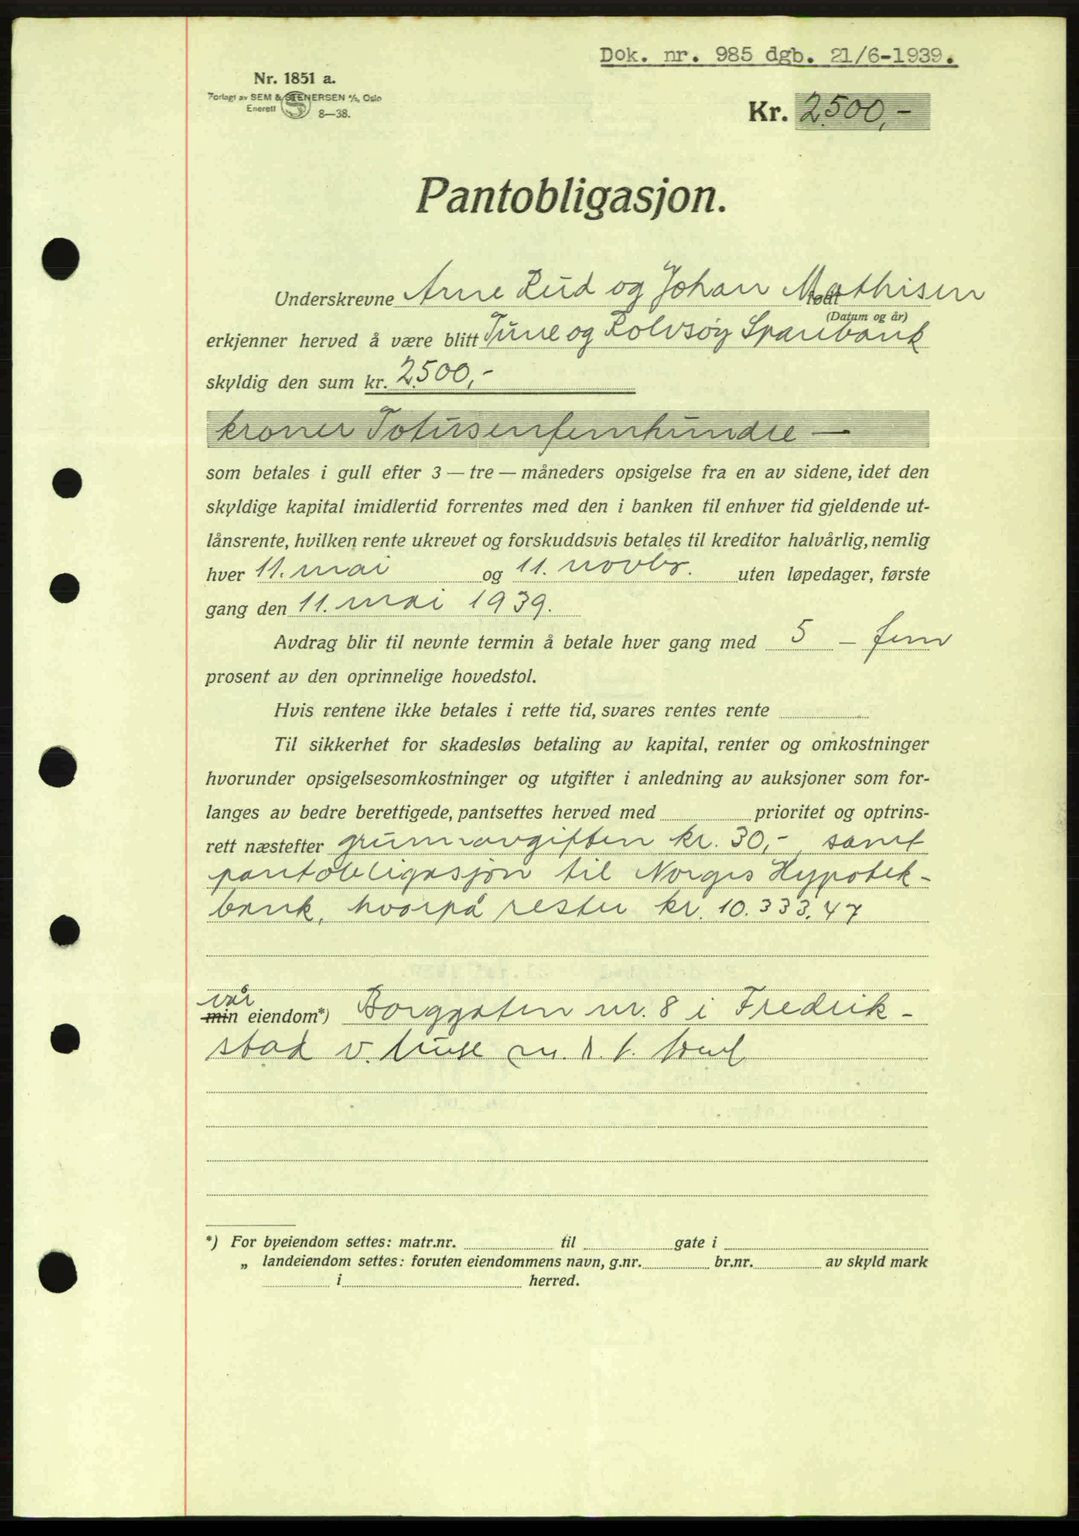 Dok. nr. 985 dgb. 21/6-1939.
Nr. 1851 a.
Forlagt av SEM & STENERSEN A/S, Oslo
Enerett
8—38.
Kr. 2500,-
Pantobligasjon.
Underskrevne Arne Rud og Johan Mathisen født
(Datum og år)
erkjenner herved å være blitt Tune og Rolvsøy Sparebank
skyldig den sum kr. 2500,-
kroner Totusenfemhundre —
som betales i gull efter 3 — tre — måneders opsigelse fra en av sidene, idet den
skyldige kapital imidlertid forrentes med den i banken til enhver tid gjeldende ut-
lånsrente, hvilken rente ukrevet og forskuddsvis betales til kreditor halvårlig, nemlig
hver 11. mai og 11. novbr. uten løpedager, første
gang den 11. mai 1939.
Avdrag blir til nevnte termin å betale hver gang med 5 — fem
prosent av den oprinnelige hovedstol.
Hvis rentene ikke betales i rette tid, svares rentes rente
Til sikkerhet for skadesløs betaling av kapital, renter og omkostninger
hvorunder opsigelsesomkostninger og utgifter i anledning av auksjoner som for-
langes av bedre berettigede, pantsettes herved med prioritet og optrins-
rett næstefter grunnavgiften kr. 30,- samt
pantobligasjon til Norges Hypotek-
bank, hvorpå rester kr. 10.333,47
vår
min eiendom*) Borggaten nr. 8 i Fredrik-
stad v.
*) For byeiendom settes: matr.nr. til gate i
„ landeiendom settes: foruten eiendommens navn, g.nr. br.nr. av skyld mark
i herred.